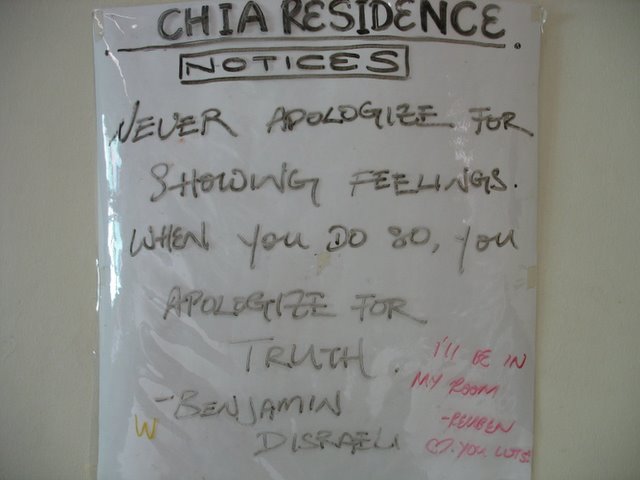 CHIA RESIDENCE.
NOTICES
NEVER APOLOGIZE FOR
SHOWING FEELINGS.
WHEN YOU DO SO, YOU
APOLOGIZE FOR
TRUTH.
-BENJAMIN
DISRAELI
W
I'll BE IN
MY ROOM
-REUBEN
♡.YOU LOTS!